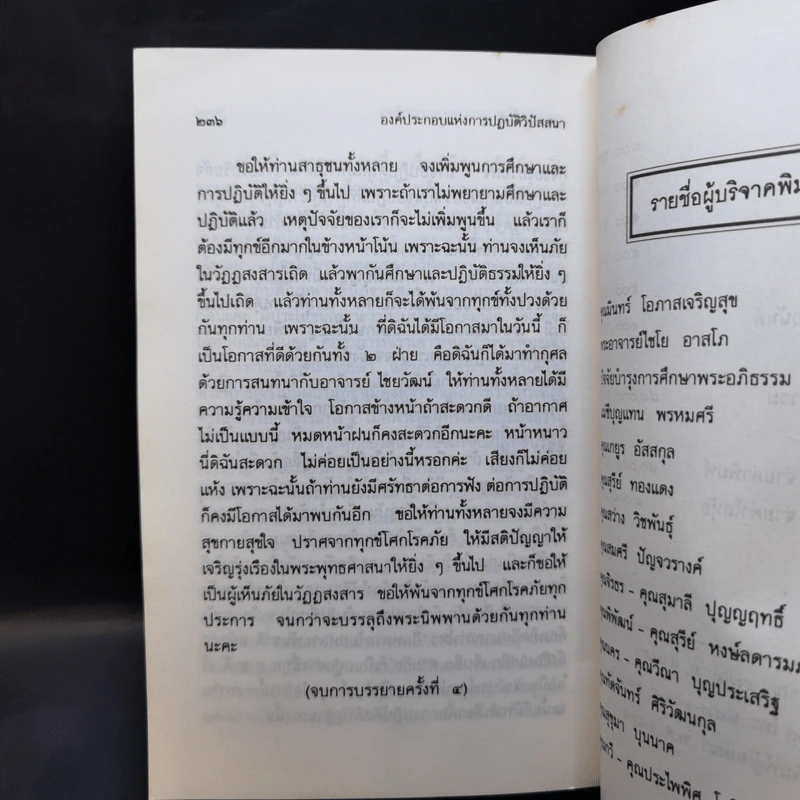 ๒๓๖ องค์ประกอบแห่งการปฏิบัติวิปัสสนา
ขอให้ท่านสาธุชนทั้งหลาย จงเพิ่มพูนการศึกษาและ
การปฏิบัติให้ยิ่ง ๆ ขึ้นไป เพราะถ้าเราไม่พยายามศึกษาและ
ปฏิบัติแล้ว เหตุปัจจัยของเราก็จะไม่เพิ่มพูนขึ้น แล้วเราก็
ต้องมีทุกข์อีกมากในข้างหน้าโน้น เพราะฉะนั้น ท่านจงเห็นภัย
ในวัฏฏสงสารเถิด แล้วพากันศึกษาและปฏิบัติธรรมให้ยิ่ง ๆ
ขึ้นไปเถิด แล้วท่านทั้งหลายก็จะได้พ้นจากทุกข์ทั้งปวงด้วย
กันทุกท่าน เพราะฉะนั้น ที่ดิฉันได้มีโอกาสมาในวันนี้ ก็
เป็นโอกาสที่ดีด้วยกันทั้ง ๒ ฝ่าย คือดิฉันก็ได้มาทำกุศล
ด้วยการสนทนากับอาจารย์ ไชยวัฒน์ ให้ท่านทั้งหลายได้มี
ความรู้ความเข้าใจ โอกาสข้างหน้าถ้าสะดวกดี ถ้าอากาศ
ไม่เป็นแบบนี้ หมดหน้าฝนก็คงสะดวกอีกนะคะ หน้าหนาว
นี่ดิฉันสะดวก ไม่ค่อยเป็นอย่างนี้หรอกค่ะ เสียงก็ไม่ค่อย
แห้ง เพราะฉะนั้นถ้าท่านยังมีศรัทธาต่อการฟัง ต่อการปฏิบัติ
ก็คงมีโอกาสได้มาพบกันอีก ขอให้ท่านทั้งหลายจงมีความ
สุขกายสุขใจ ปราศจากทุกข์โศกโรคภัย ให้มีสติปัญญาให้
เจริญรุ่งเรืองในพระพุทธศาสนาให้ยิ่ง ๆ ขึ้นไป และก็ขอให้
เป็นผู้เห็นภัยในวัฏฏสงสาร ขอให้พ้นจากทุกข์โศกโรคภัยทุก
ประการ จนกว่าจะบรรลุถึงพระนิพพานด้วยกันทุกท่าน
นะคะ
(จบการบรรยายครั้งที่ ๔)
รายชื่อผู้บริจาคพิม
คุณมินทร์ โอภาสเจริญสุข
พระอาจารย์ไชโย อาสโภ
ปัจจัยบำรุงการศึกษาพระอภิธรรม
แม่ชีบุญแทน พรหมศรี
คุณเกยูร อัสสกุล
คุณสุรีย์ ทองแดง
คุณสว่าง วิชพันธุ์
คุณสมศรี ปัญจวรางค์
คุณจิรธร - คุณสุมาลี ปุญญฤทธิ์
คุณพิพัฒน์ - คุณสุรีย์ หงษ์ลดารมภ
คุณนคร - คุณวีณา บุญประเสริฐ
คุณทัดจันทร์ ศิริวัฒนกุล
คุณสุขุมา บุนนาค
- คุณประไพพิศ